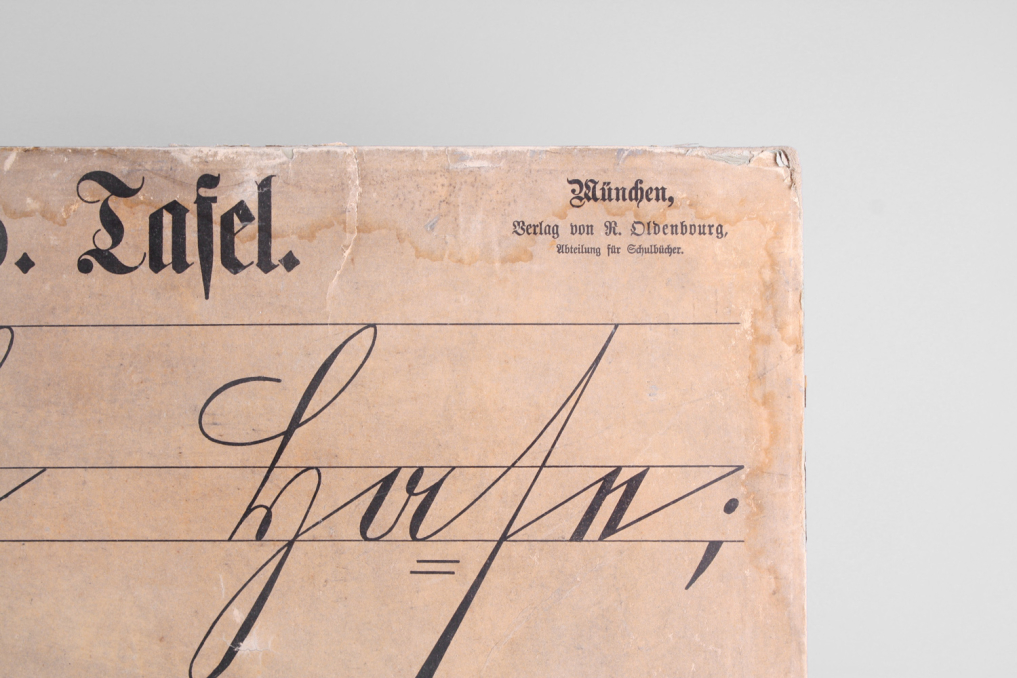 Tafel.
München,
Verlag von R. Oldenbourg,
Abteilung für Schulbücher.
Hase;